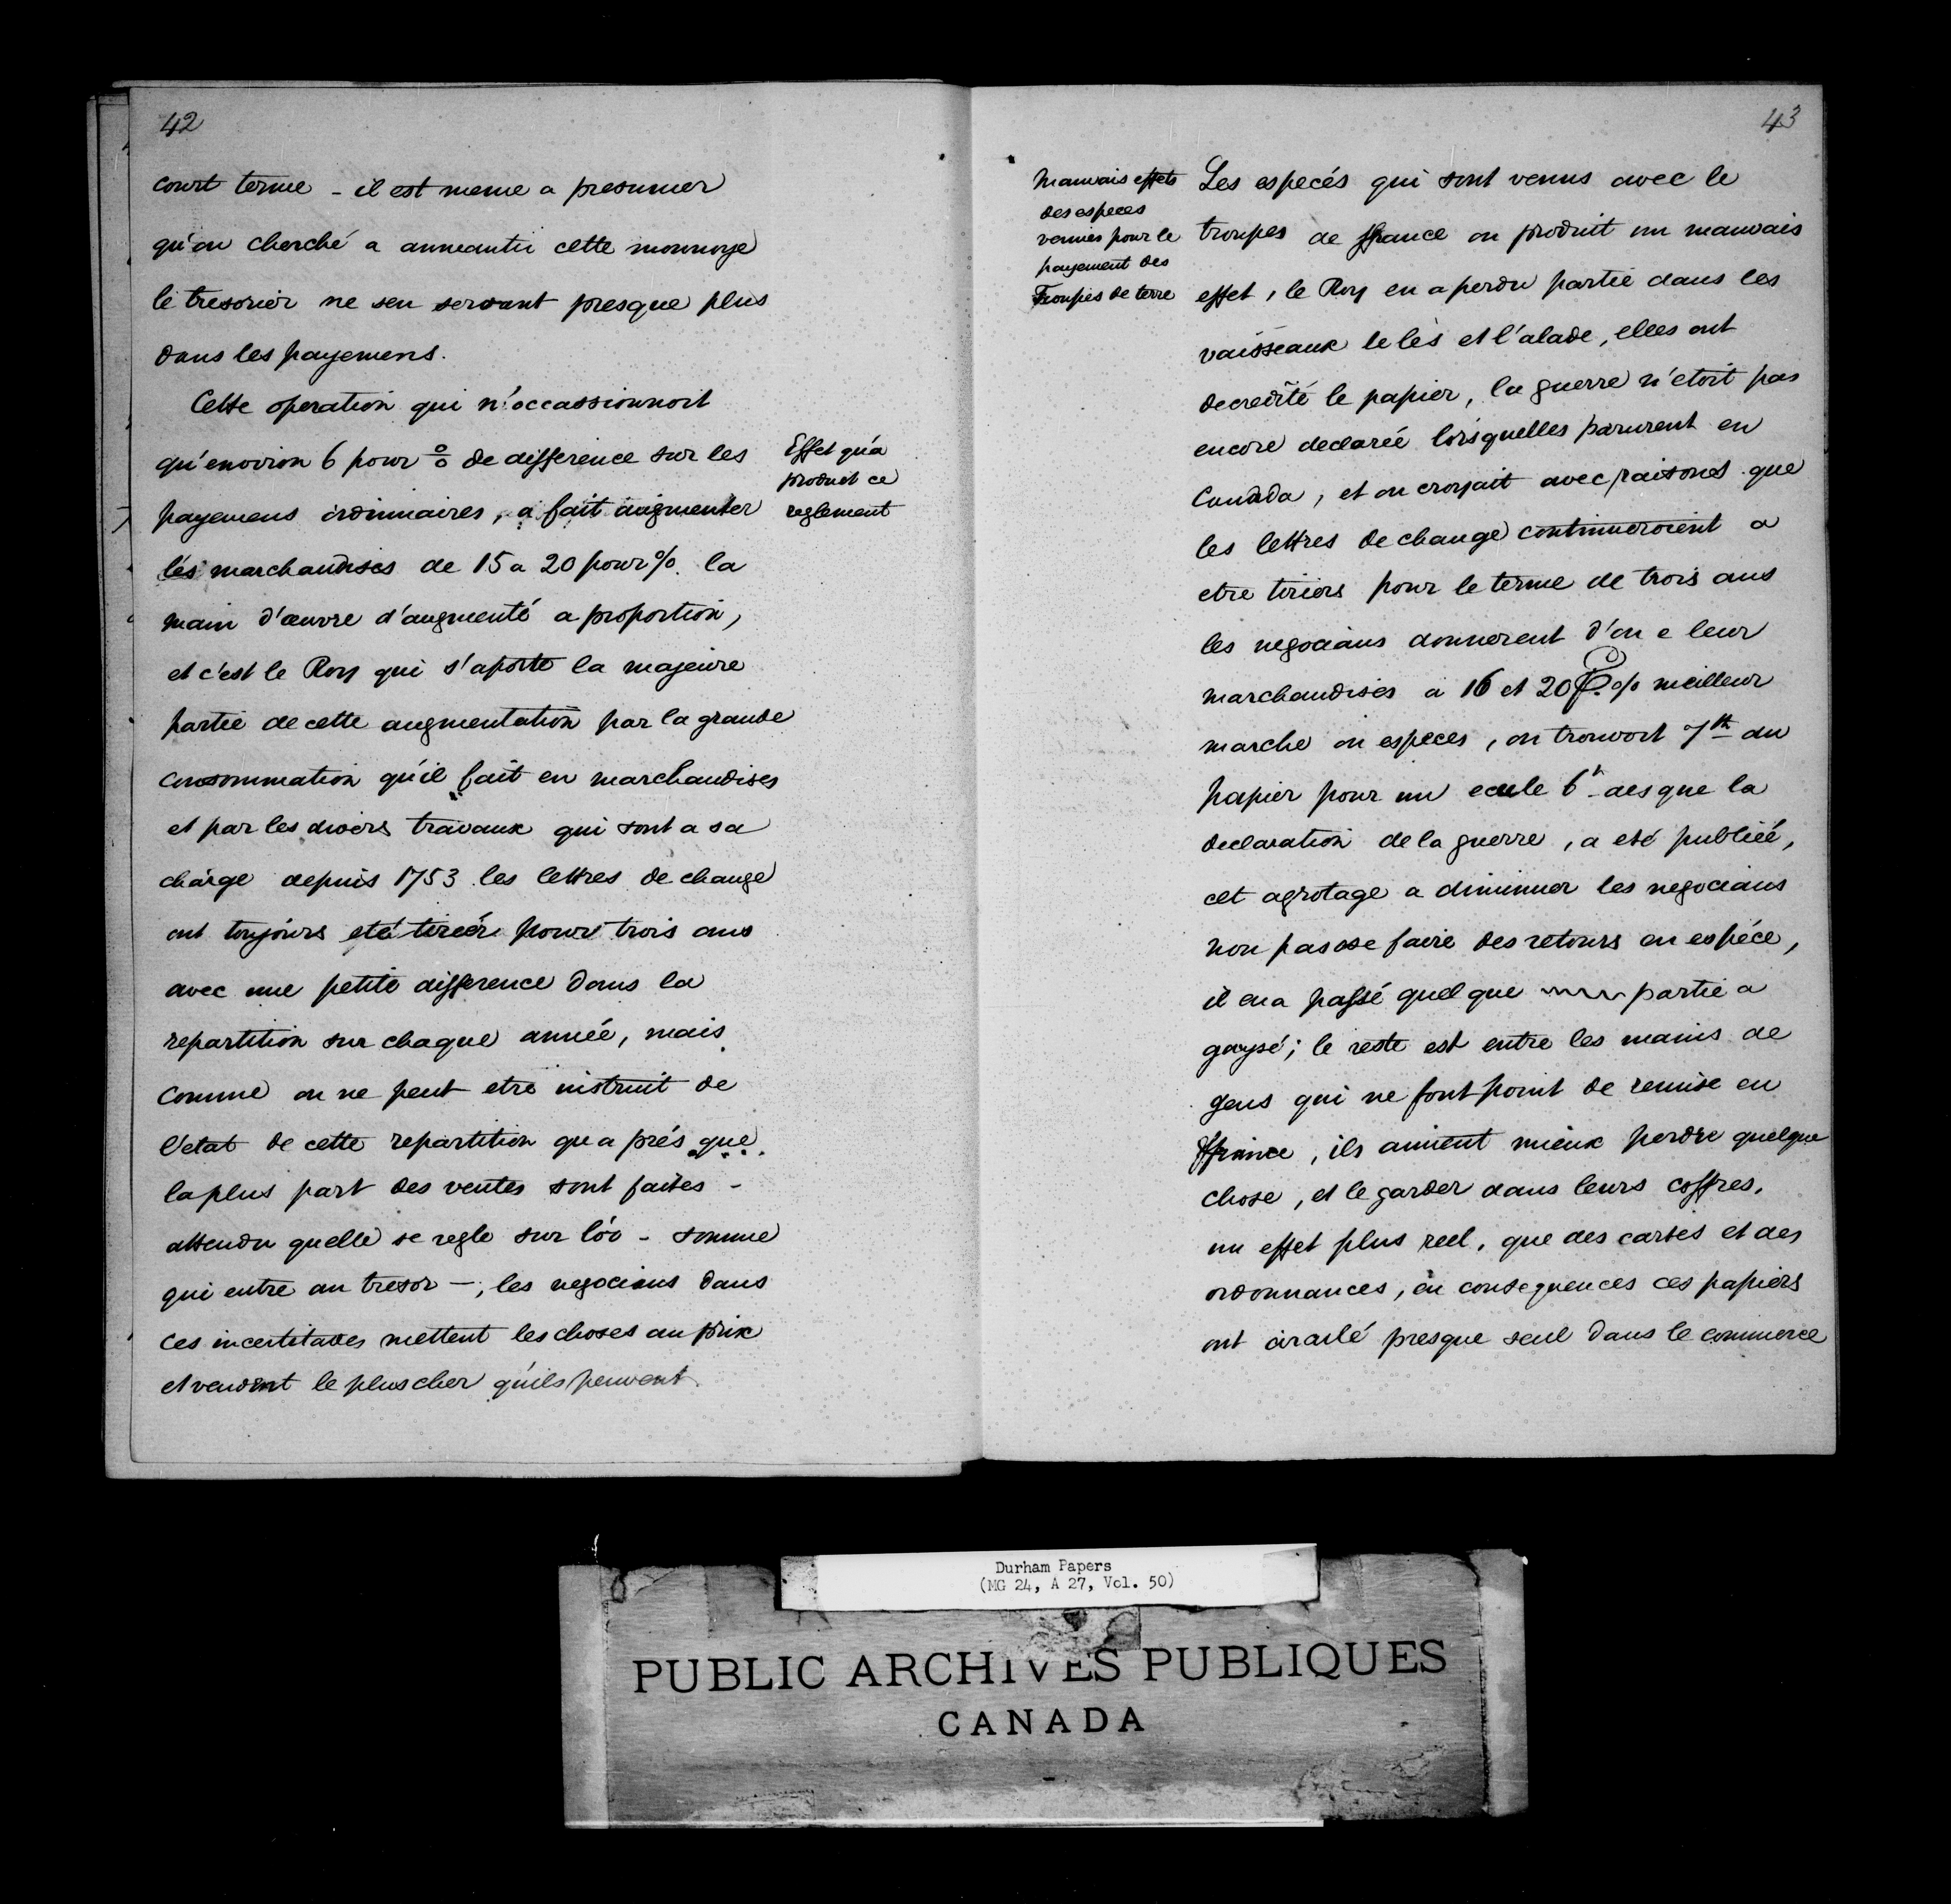 42
court terme - il est meme a presumer
qu'on cherché a anneantir cette monnoye
le tresorier ne sen servant presque plus
dans les payemens.
Cette operation qui n'occassionnoit
qu'environ 6 pour % de difference sur les
payemens ordinaires, a fait augmenter
les marchandises de 15 a 20 pour % la
main d'œuvre d'augmenté a proportion,
et c'est le Roy qui s'aporte la majeure
partie de cette augmentation par la grande
consommation qu'il fait en marchandises
et par les divers travaux qui sont a sa
charge depuis 1753 les lettres de change
ont toujours eté tireér pour trois ans
avec une petite difference dans la
repartition sur chaque année, mais
comme on ne peut etre instruit de
l'etat de cette repartition qu a prés que
la plus part des ventes sont faites -
attendu quelle se regle sur l'oo - somme
qui entre au tresor -, les negocians dans
ces incertitudes mettent les choses au prix
et vendent le plus cher qu'ils peuvent.
Effet qu'a
produit ce
reglement
43
Mauvais effets
des especes
venues pour le
payement des
Troupes de terre
Les especés qui sont venus avec le
troupes de ffrance on produit un mauvais
effet, le Roy en a perdu partie dans les
vaisseaux le lès et l'alade, elles ont
decredité le papier, la guerre n'etoit pas
encore declarée lorsquelles parurent en
Canada, et on croyait avec raisons que
les lettres de change continueroient a
etre tiriers pour le terme de trois ans
les negocians donnerent d'on e leur
marchandises a 16 et 20 P. % meilleur
marche on especes, on trouvoit 7tt du
papier pour un ecule 6tt des que la
declaration de la guerre, a eté publiéé,
cet agrotage a diminuer les negocians
non pas ose faire des retours en espéce,
il en a passé quel que partie a
gayse; le reste est entre les mains de
gens qui ne font point de remise en
ffrance, ils aiment mieux perdre quelque
chose, et le garder dans leurs coffres,
un effet plus reel, que des cartes et des
ordonnances, en consequences ces papiers
ont circulé presque seul dans le commerce
Durham Papers
(MG 24, A 27, Vol. 50)
PUBLIC ARCHIVES PUBLIQUES
CANADA